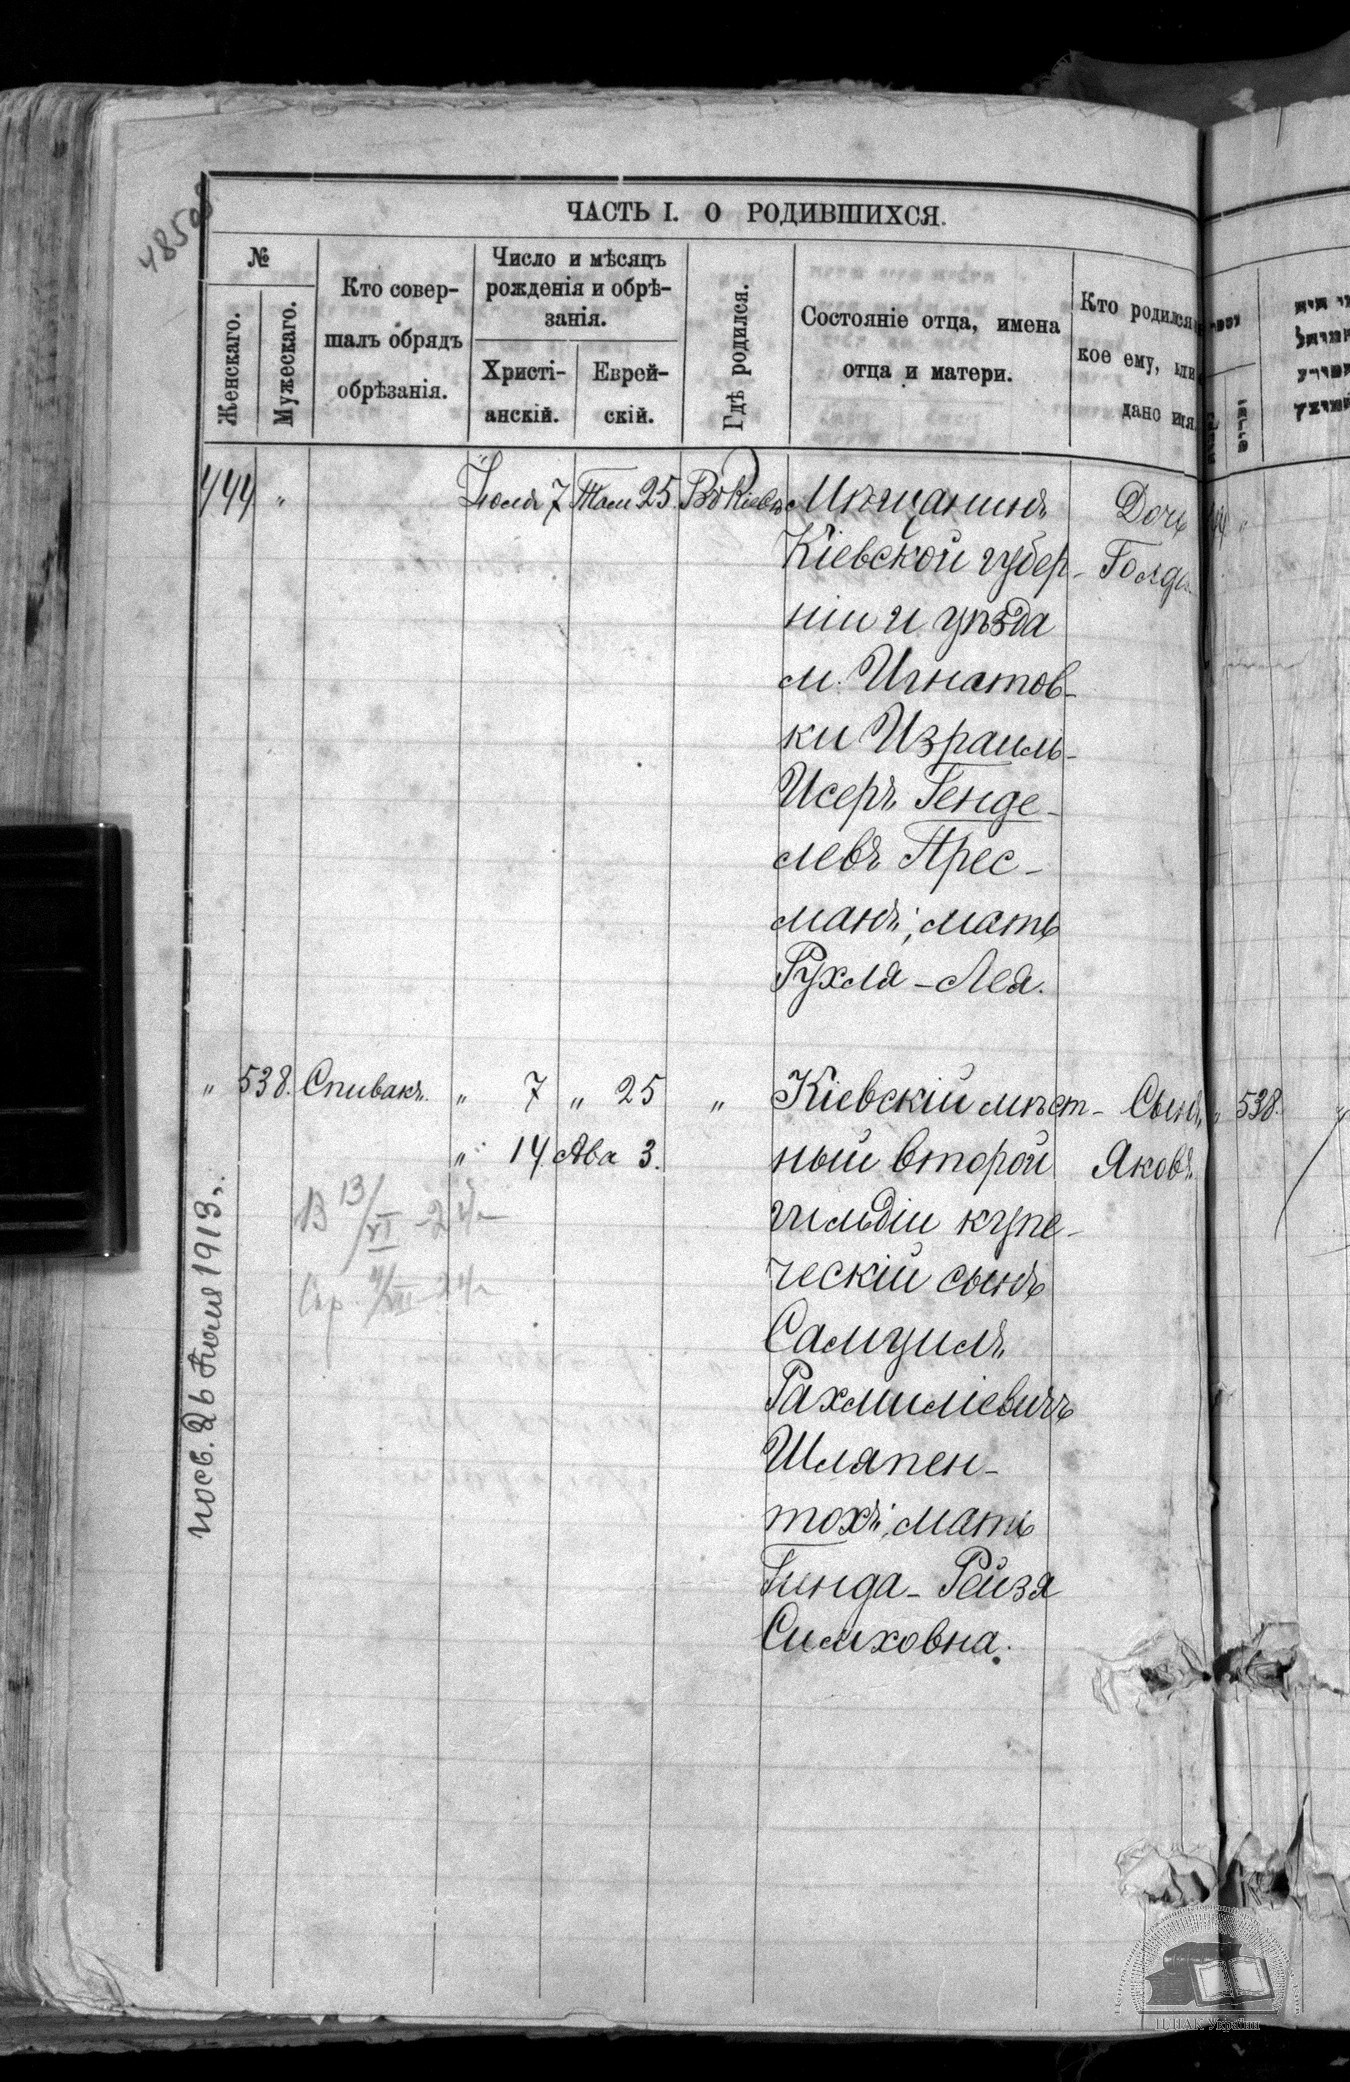 ЧАСТЬ I. О РОДИВШИХСЯ.
№
Женскаго.
Мужескаго.
Кто совер-
шалъ обрядъ
обрѣзанія.
Число и мѣсяцъ
рожденія и обрѣ-
занія.
Христі-
анскій.
Еврей-
скій.
Гдѣ родился.
Состояніе отца, имена
отца и матери.
Кто родился
кое ему, или
дано имя.
444. " Іюля 7 Там 25. Въ Кіевѣ Мѣщанинъ Дочь
Кіевской губер- Голда
ніи и уѣзда
м. Игнатов-
ки Израиль-
Исеръ Генде-
левъ Прес-
манъ; мать
Рухля-Лея.
" 538. Спивакъ. " 7 " 25 " Кіевскій мѣст- Сынъ " 538.
" 14 Ава 3. ный второй Яковъ.
гильдіи купе-
ческій сынъ
Самуилъ
Рахмиліевичъ
Шляпен-
тохъ; мать
Гинда-Рейзя
Симховна.
В 13/VI -24г
посв. 26 Іюля 1913 г.
ЦДІАК України